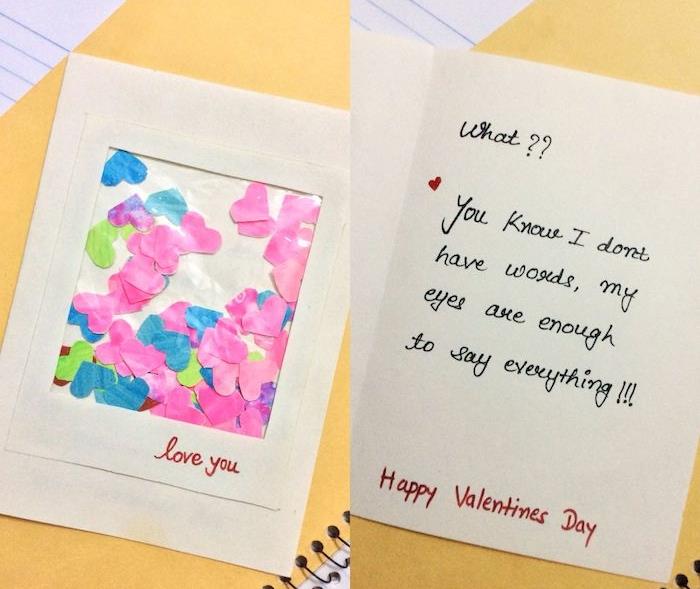 love you
What ??
You Know I dont
have words, my
eyes are enough
to say everything!!!
Happy Valentines Day